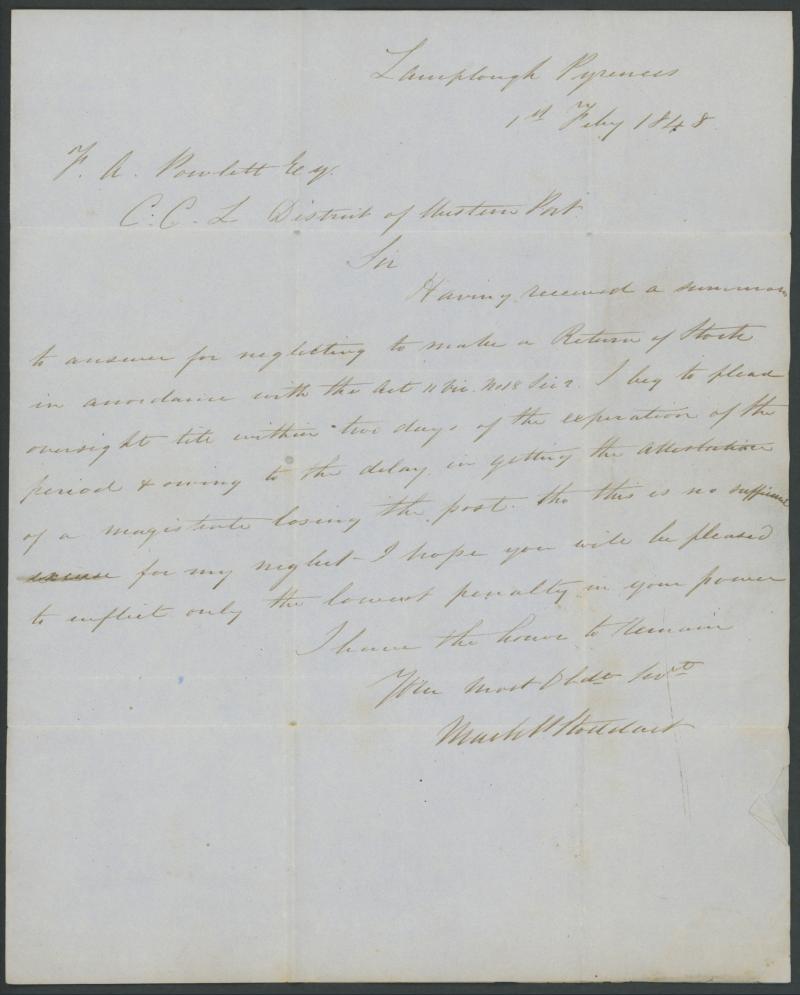 Lamplough Pyrenees
1st Feby 1848
F. A. Powlett Esq.
C. C. L District of Western Port
Sir
Having received a summons
to answer for neglecting to make a Return of Stock
in accordance with the Act 11 Vic. No 18 Sec 2. I beg to plead
oversight till within two days of the expiration of the
period & owing to the delay in getting the attestation
of a magistrate losing the post. tho this is no sufficient
excuse for my neglect - I hope you will be pleased
to inflict only the lowest penalty in your power
I have the honor to Remain
Your most Obdt Servt
Mark W Stoddart